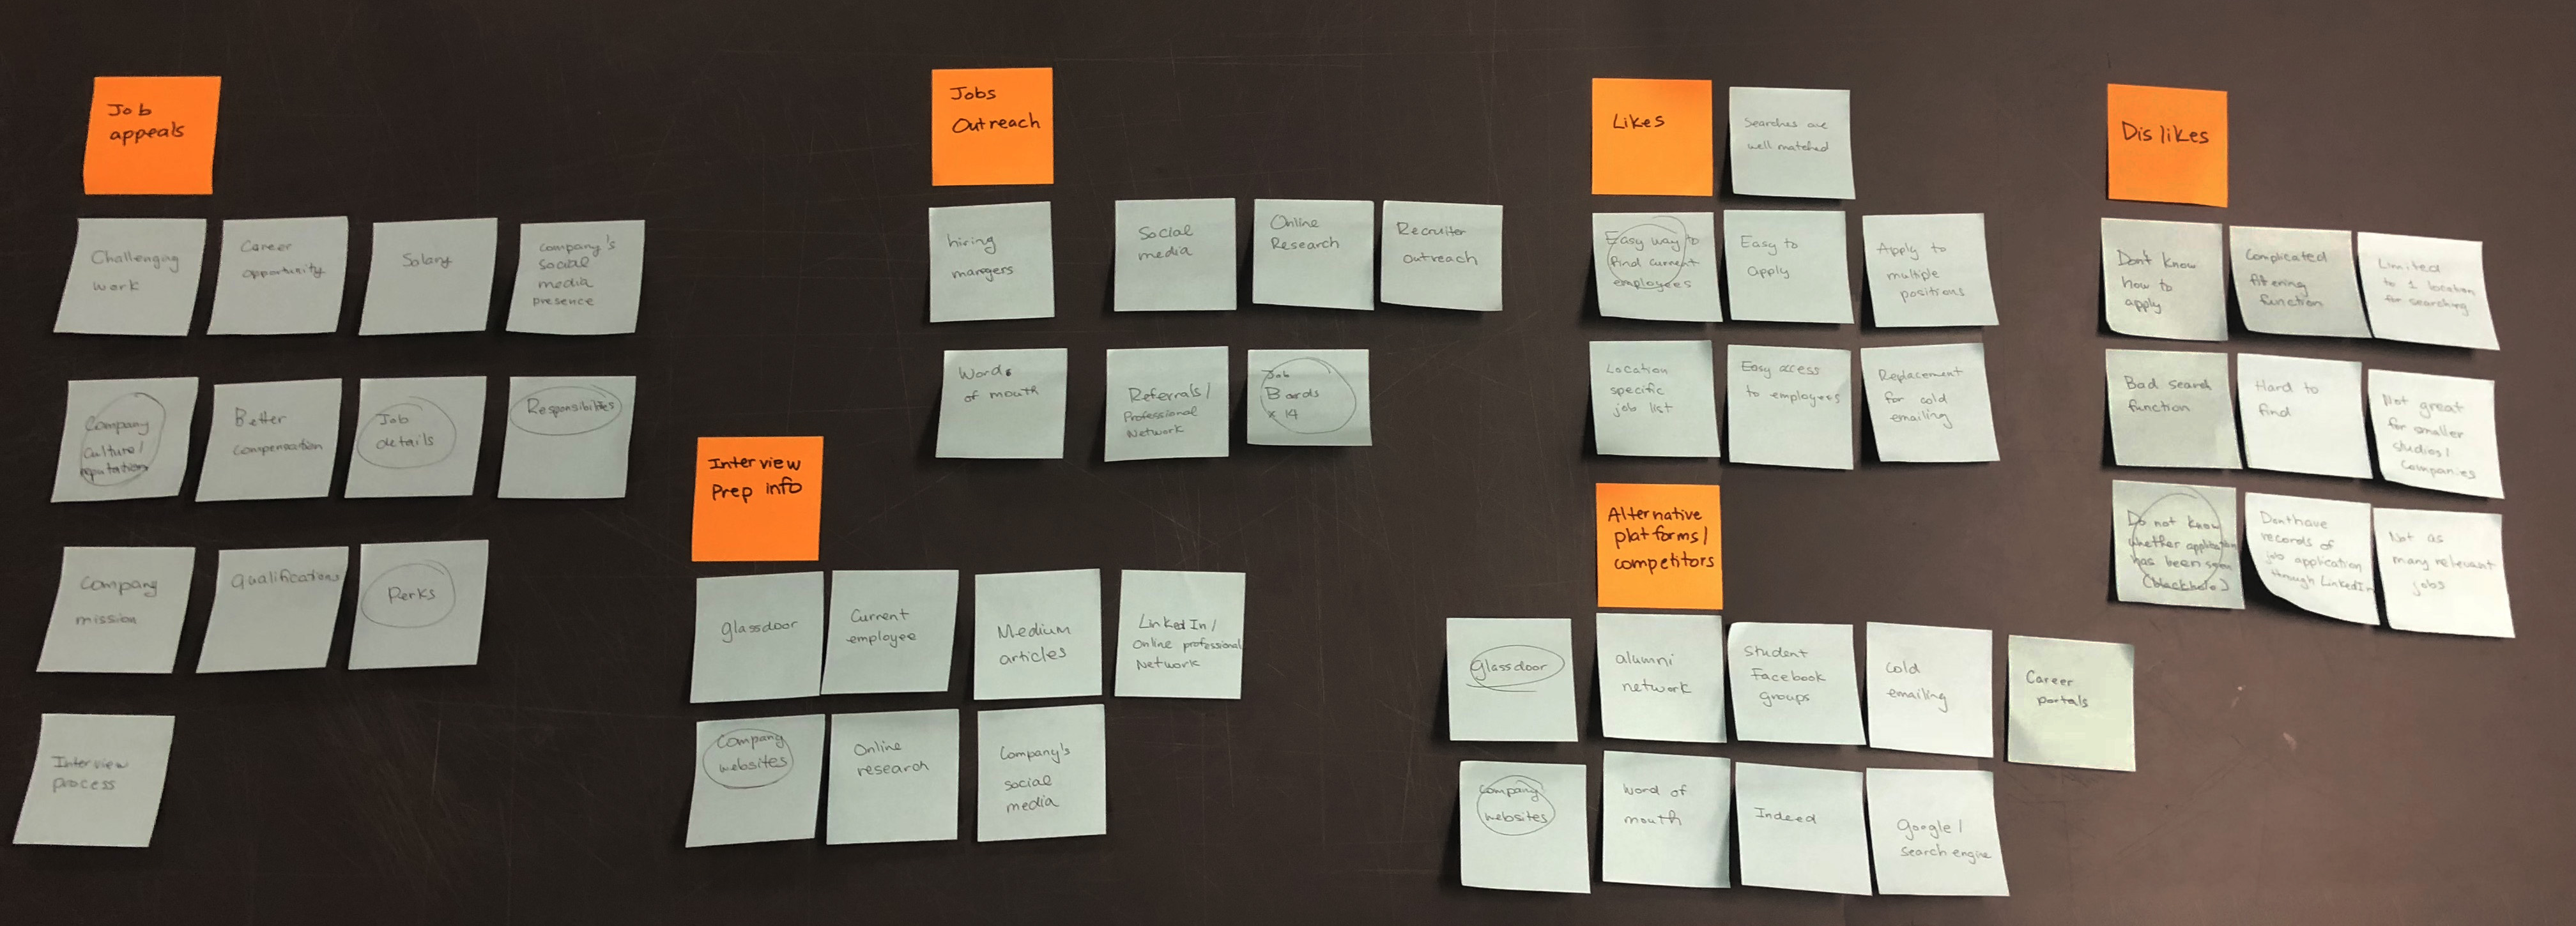 Job
appeals
Challenging
work
Career
opportunity
Salary
Company's
social
media
presence
Company
Culture/
reputation
Better
compensation
Job
details
Responsibilites
Company
mission
Qualifications
Perks
Interview
process
Interview
Prep info
glassdoor
Current
employee
Medium
articles
LinkedIn/
Online professional
Network
Company
websites
Online
research
Company's
social
media
Jobs
Outreach
hiring
managers
Social
media
Online
Research
Recruiter
outreach
Words
of mouth
Referrals/
Professional
Network
Job
Boards
x 14
Likes
Searches are
well matched
Easy way to
find current
employees
Easy to
apply
Apply to
multiple
positions
Location
specific
job list
Easy access
to employees
Replacement
for cold
emailing
Alternative
platforms/
competitors
glassdoor
alumni
network
Student
Facebook
groups
cold
emailing
Career
portals
Company
websites
Word of
mouth
Indeed
Google/
search engine
Dislikes
Don't know
how to
apply
Complicated
filtering
function
Limited
to 1 location
for searching
Bad search
function
Hard to
find
Not great
for smaller
studios/
Companies
Do not know
whether application
has been seen
(blackhole)
Dont have
records of
job application
through LinkedIn
Not as
many relevant
jobs